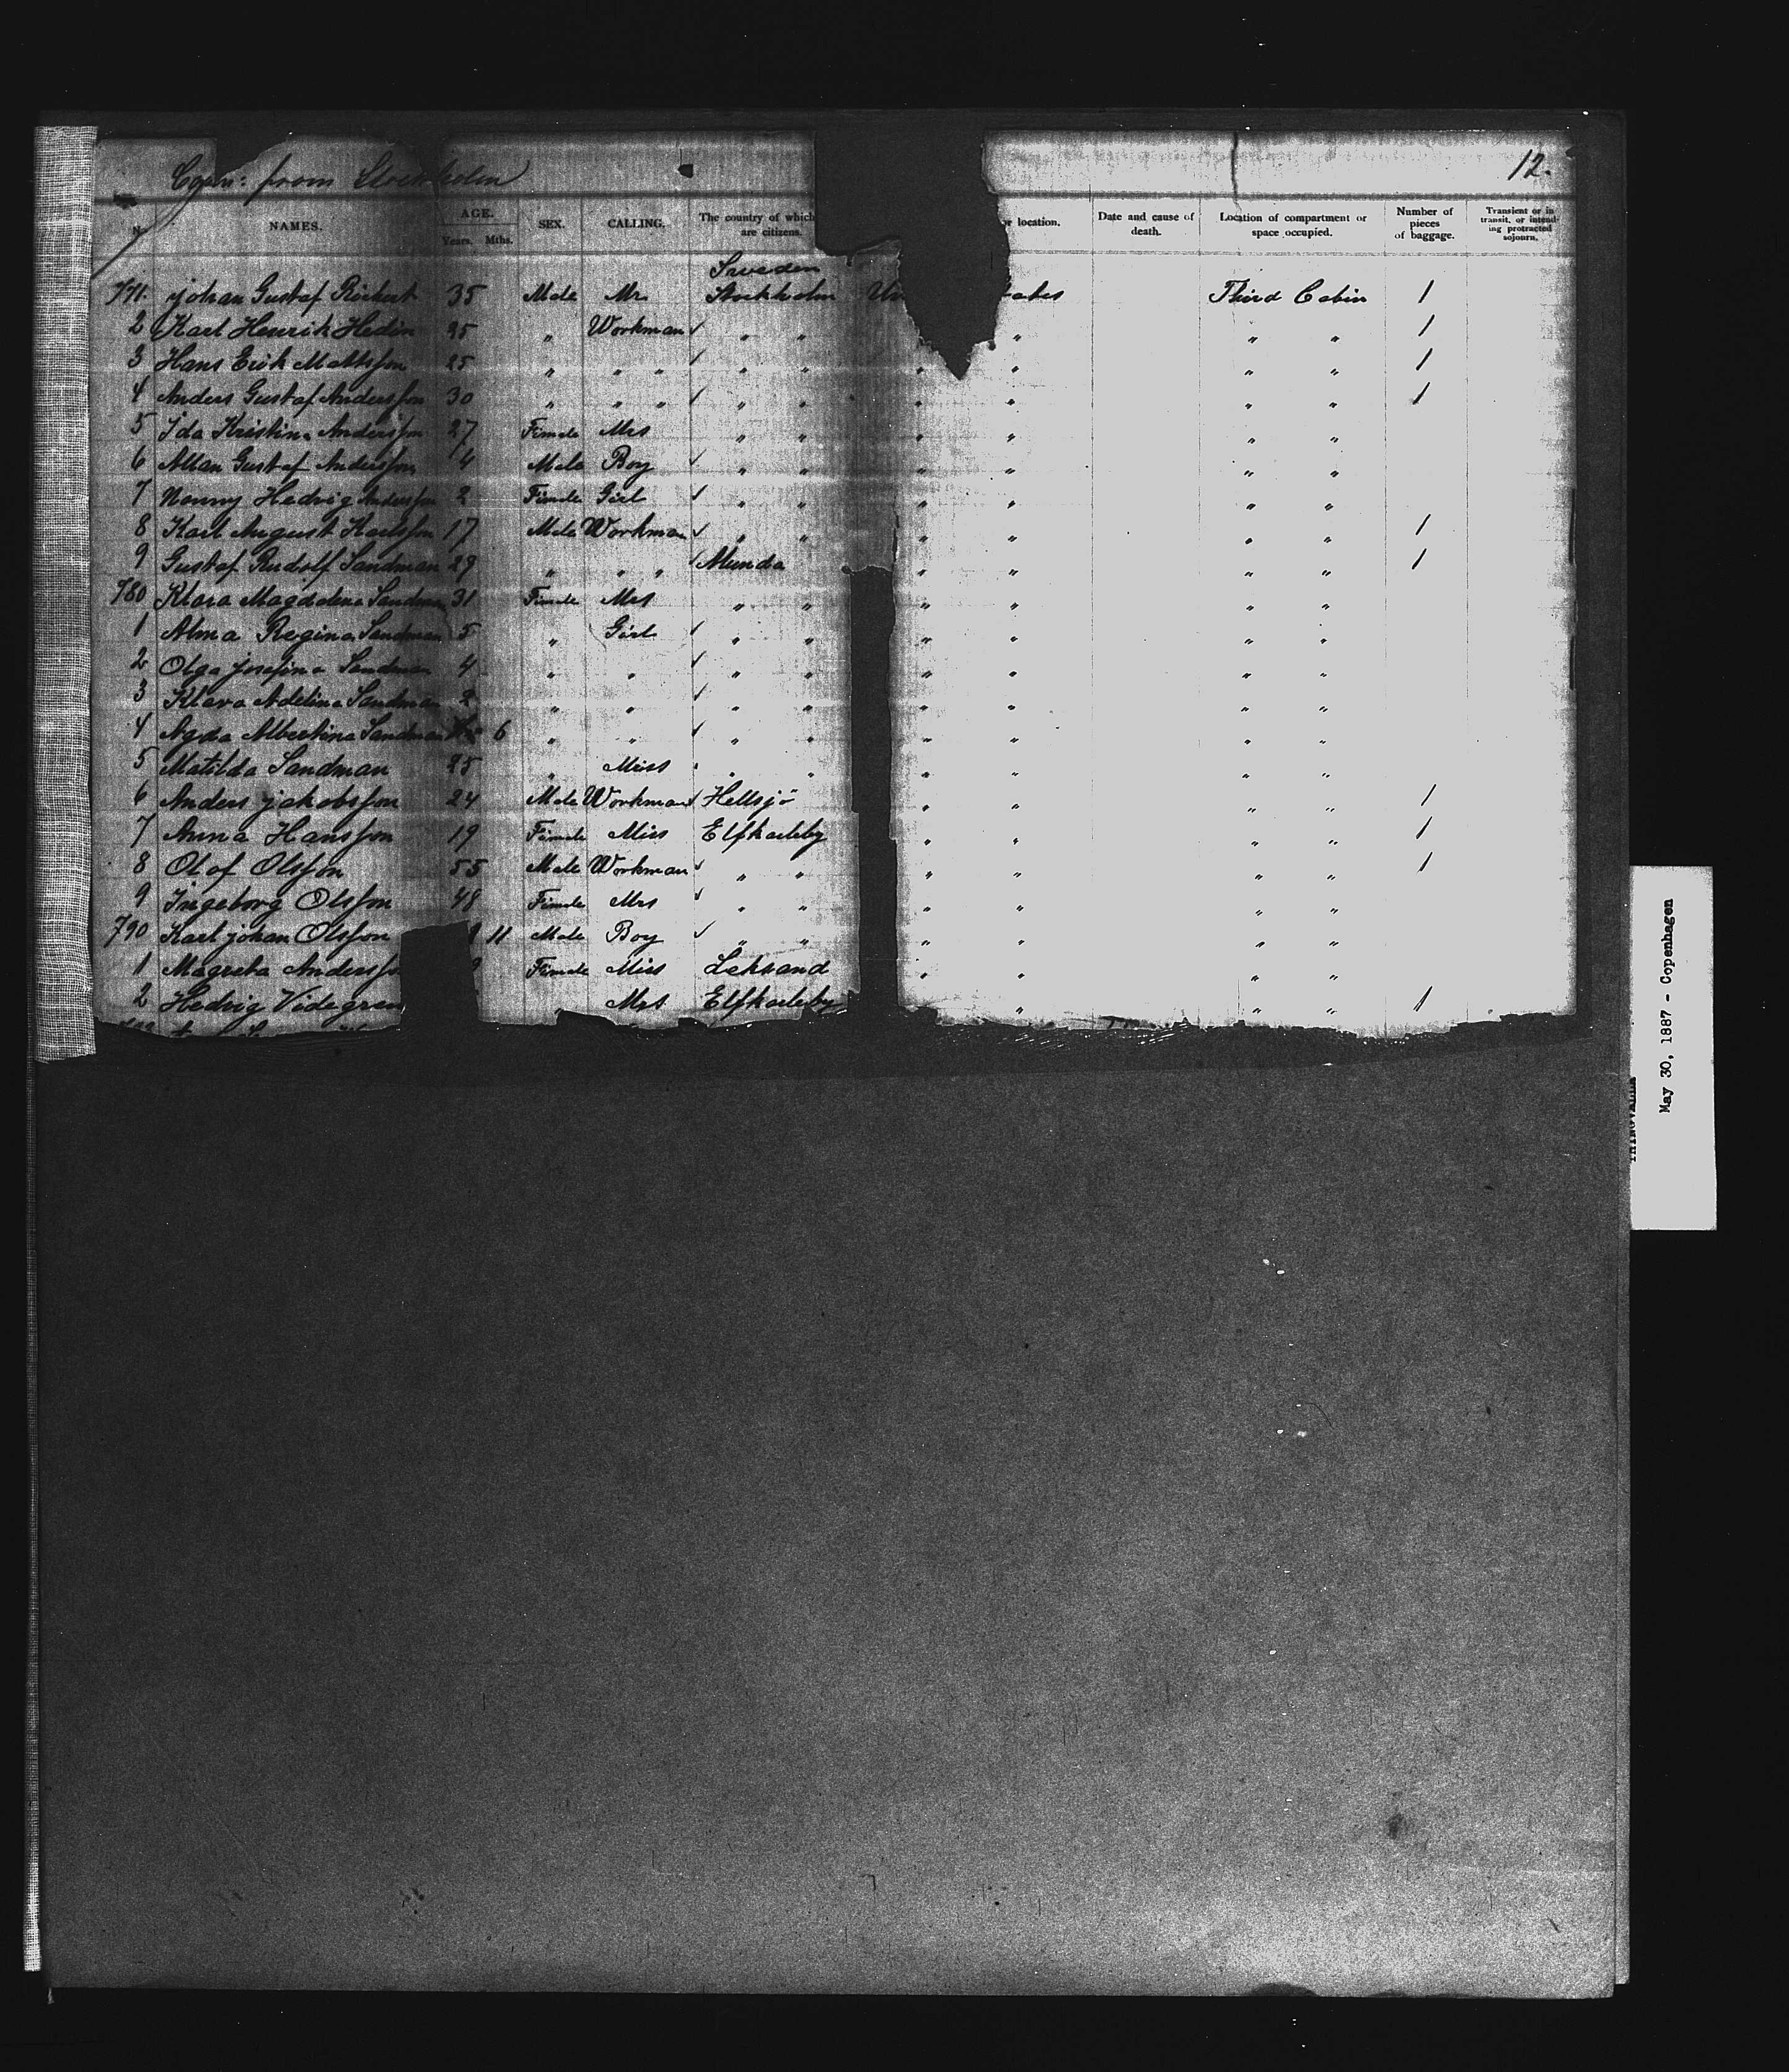 from Stockholm
12.
N NAMES. AGE. Years. Mths. SEX. CALLING. The country of which are citizens. or location. Date and cause of death. Location of compartment or space occupied. Number of pieces of baggage. Transient or in transit, or intending protracted sojourn.
Sweden
771. Johan Gustaf 35 Male Mr. Stockholm Un ates Third Cabin 1
2 Karl Henrik Hedin 25 " Workman " " " " " 1
3 Hans Erik Mattsson 25 " " " " " " " " " 1
4 Anders Gustaf Andersson 30 " " " " " " " " " 1
5 Ida Kristina Andersson 27 Female Mrs " " " " " "
6 Allan Gustaf Andersson 4 Male Boy " " " " " "
7 Nanny Hedvig Andersson 2 Female Girl " " " " " "
8 Karl August Karlsson 17 Male Workman " " " " " 1
9 Gustaf Rudolf Sandman 29 " " " Munda " " " " 1
780 Klara Magdalena Sandman 31 Female Mrs " " " " " "
1 Alma Regina Sandman 5 " Girl " " " " " "
2 Olga Josefina Sandman 4 " " " " " " " "
3 Klara Adelina Sandman 2 " " " " " " " "
4 Agda Albertina Sandman 6 " " " " " " " "
5 Matilda Sandman 25 " Miss " " " " " "
6 Anders Jakobsson 24 Male Workman Hellsjö " " " " 1
7 Anna Hansson 19 Female Miss Elfkarleby " " " " 1
8 Olof Olsson 55 Male Workman " " " " " " 1
9 Ingeborg Olsson 48 Female Mrs " " " " " "
790 Karl Johan Olsson 11 Male Boy " " " " " "
1 Magreta Anderss Female Miss Leksand " " " "
2 Hedvig Videgren " Mrs Elfkarleby " " " 1
May 30, 1887 - Copenhagen